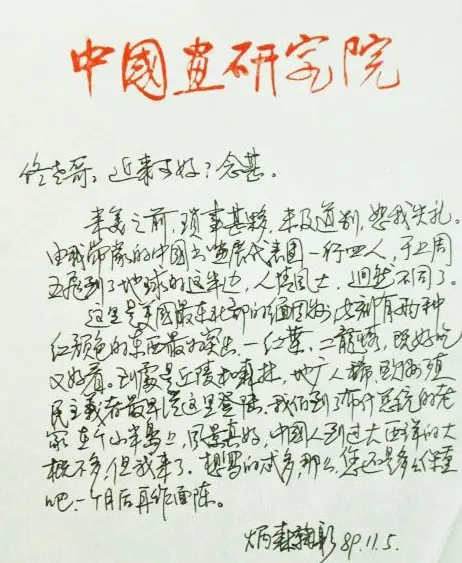 中國画研究院
近来可好？念甚。
来美之前，琐事甚夥，未及道别，恕我失礼。
由我带队的中国画展代表团一行四人，于上周
五飞到了地球的这半边，人情风土，迥然不同了。
这里是美国最东北部的缅因州，此刻有两种
红颜色的东西最为突出，一红葉，二龍蝦，既好吃
又好看。到處是丘陵和森林，地广人稀，欧洲殖
民主義者最早從这里登陆。我们到了布什总统的老
家在个小半岛上，风景真好，中國人到过大西洋的大
概不多，但我来了。想写的甚多，那么，您还是多多保重
吧，一个月后再作面陈。
炳森 89.11.5.